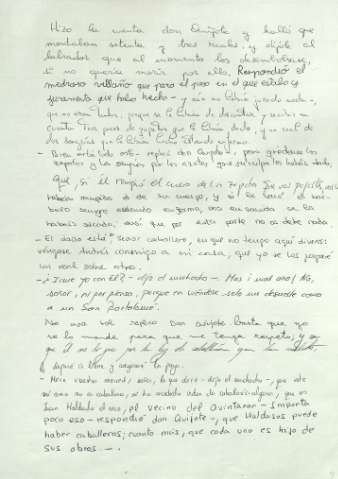 Hizo la cuenta don Quijote y halló que
montaban setenta y tres reales, y díjole al
labrador que al momento los desembolsase,
si no quería morir por ello. Respondió el
medroso villano que para el paso en que estaba y
juramento que había hecho - y aún no había jurado nada -,
que no eran tantos, porque se le habían de descontar y recibir en
cuenta tres pares de zapatos que le había dado, y un real de
dos sangrías que le habían hecho estando enfermo.
- Bien está todo esto - replicó don Quijote -, pero quédense los
zapatos y las sangrías por los azotes que sin culpa le habéis dado.
Que, si él rompió el cuero de los zapatos que vos pagasteis, vos le
habéis rompido el de su cuerpo, y si le sacó el
barbero sangre estando enfermo, vos en sanidad se la
habéis sacado; así que por esta parte no os debe nada.
- El daño está, señor caballero, en que no tengo aquí dineros:
véngase Andrés conmigo a mi casa, que yo se los pagaré
un real sobre otro.
- ¿Irme yo con él? - dijo el muchacho -. Mas ¡mal año! No,
señor, ni por pienso, porque en viéndose solo me desuelle como
a un San Bartolomé.
No hará tal - replicó Don Quijote basta que yo
se lo mande para que me tenga respeto; y
que él me lo jure por la ley de caballería
le dejaré ir libre y aseguraré la paga.
- Mire vuestra merced, señor, lo que dice - dijo el muchacho -, que este
mi amo no es caballero, ni ha recibido orden de caballería alguna, que es
Juan Haldudo el rico, el vecino del Quintanar. - Importa
poco eso - respondió don Quijote -, que Haldudos puede
haber caballeros; cuanto más, que cada uno es hijo de
sus obras. -.